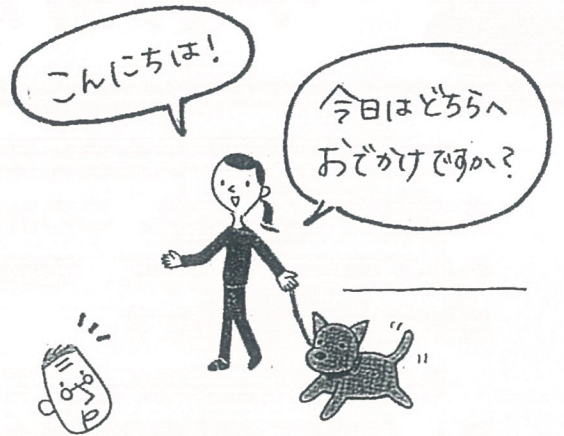 こんにちは!
今日はどちらへ
おでかけですか?